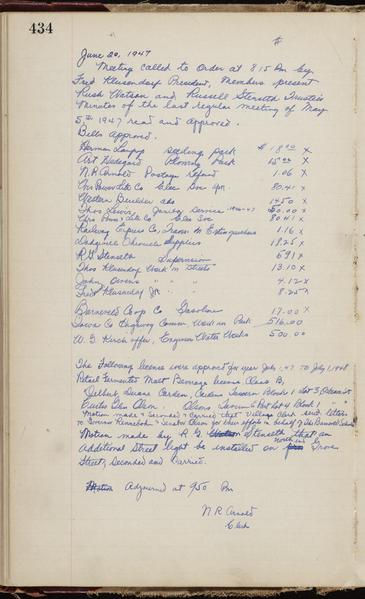 434
June 20, 1947
Meeting called to Order at 8 15 Pm by
Fred President, Members present
Rush Watson and Russell Stenseth Trustees
Minutes of the last regular meeting of May
5th 1947 read and approved.
Bills approved.
Herman seeding park $ 18.00 x
Art Plowing Park 15.00 x
N.R. Arnold Postage Refund 1.06 x
Wis Power Lite Co Elec Ser Apr. 80.41 x
Western Builder ads 14.50 x
Thos Lewis, Service 1946-47 50.00 x
Wis Power Lite Co Elec Ser 80.41 x
Railway Express Co, Trans. on Extinguishers 1.16 x
Dodgeville Chronicle Supplies 18.25 x
R G Stenseth Supervision 6.91 x
Thos Work on Streets 13.10 x
John Owens " " " 4.12 x
Fred Jr. " " 8.25 x
Barneveld Coop Co Gasoline 17.00 x
Iowa Co Highway Comm. Work in Park 516.00
W. G. Kirchoffer, Engineer Water Works 500.00
The Following license were approved for year July 1, 47 to July 1, 1948
Retail Fermented Malt Beverage license Class B,
Delbert, Duane Tavern Block 1 Lot 3
Curtis Olson. Olsons Tavern Lot 4 Block 1 " "
Motion made & Seconded & Carried that Village Clerk send letters
to Governor Rennebohm & Senator Olson for their efforts in behalf of the Barneveld
Motion made by R. G. Stenseth that an
Additional Street light be installed on north end Grove
Street, Seconded and Carried.
Adjourned at 9 50 Pm
N R Arnold
Clerk